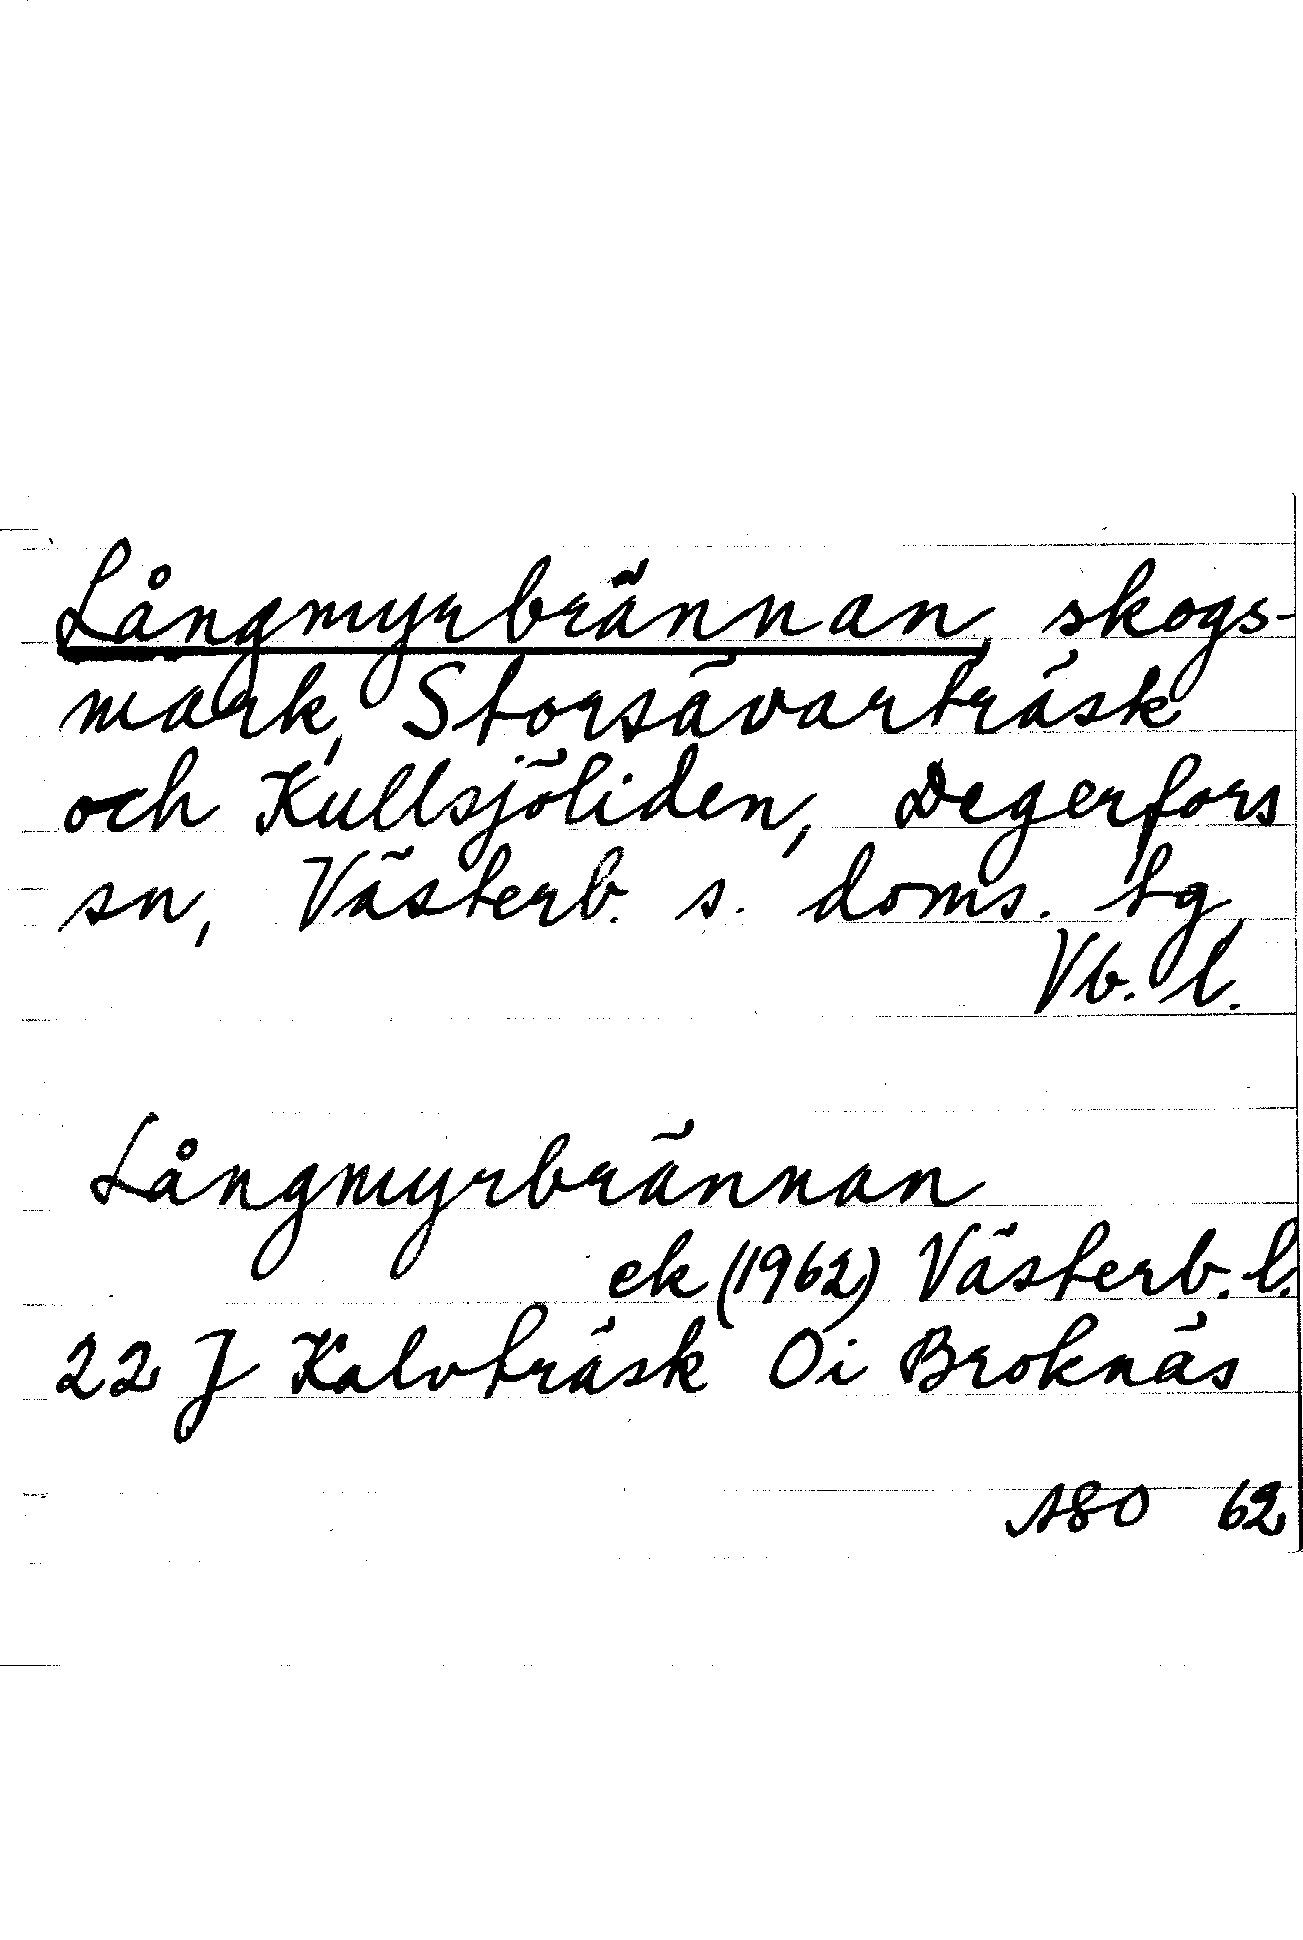 Långmyrbrännan, skogs-
mark, Storsävarträsk
och Kullsjöliden, Degerfors
sn, Västerb. s. doms. tg
Vb. l.
Långmyrbrännan
ek (1962) Västerb. l.
22 J Kalvträsk Oi Broknäs
ASO 62